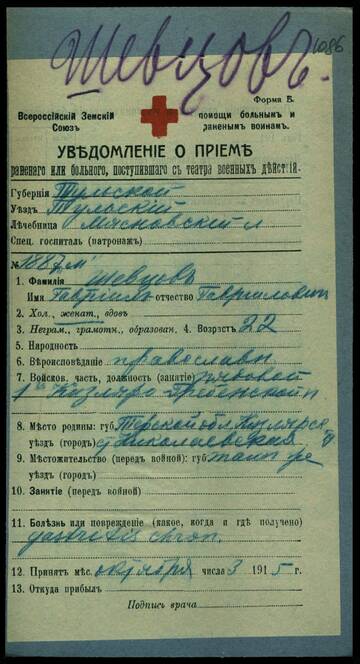 Шевцовъ.
1086
Форма Б.
Всероссійскій Земскій помощи больнымъ и
Союзъ раненымъ воинамъ.
УВѢДОМЛЕНІЕ О ПРІЕМѢ
раненаго или больного, поступившаго съ театра военныхъ дѣйствій.
Губернія Тульской
Уѣздъ Тульскій
Лѣчебница Мясновский
Спец. госпиталь (патронаж)
№ 1887
1. Фамилія Шевцовъ
Имя Гавріилъ отчество Гавриловичъ
2. Хол., женат., вдов.
3. Неграм., грамотн., образован. 4. Возрастъ 22
5. Народность
6. Вѣроисповѣданіе православн
7. Войсков. часть, должность (занятіе) рядовой
1й Кизляро Гребенской п
8. Мѣсто родины: губ. Терской обл. Кизлярск
уѣзд (город) Николаевская
9. Мѣстожительство (перед войной): губ. тамъ же
уѣзд (город)
10. Занятіе (перед войной)
11. Болѣзнь или поврежденіе (какое, когда и гдѣ получено)
gastritis chron.
12. Принятъ мѣс. октября числа 3 1915 г.
13. Откуда прибылъ
Подпись врача